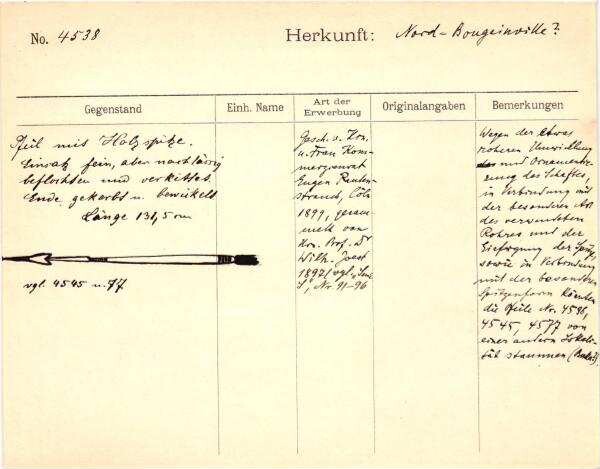 No. 4538
Herkunft: Nord-Bougainville?
Gegenstand
Einh. Name
Art der Erwerbung
Originalangaben
Bemerkungen
Pfeil mit Holzspitze.
Einsatz fein, aber nachlässig
beflochten und verkittet.
Ende gekerbt u. bewickelt
Länge 131,5 cm
vgl. 4545 u. 77
Gesch. v. Hrn.
u. Frau Kom-
merzienrat
Eugen Rauten-
strauch, Cöln
1899, gesam-
melt von
Hrn. Prof. Dr
Wilh. Joest
1897 (vgl.
Nr. 91-96
Wegen der etwas
roheren Umwicklung
und Ornamentie-
rung des Schaftes,
in Verbindung mit
der besonderen Art
des verwendeten
Rohres und der
der Spitze,
sowie in Verbindung
mit der besonderen
Spitzenform könnten
die Pfeile Nr. 4538,
4545, 4577 von
einer andern Lokali-
tät stammen